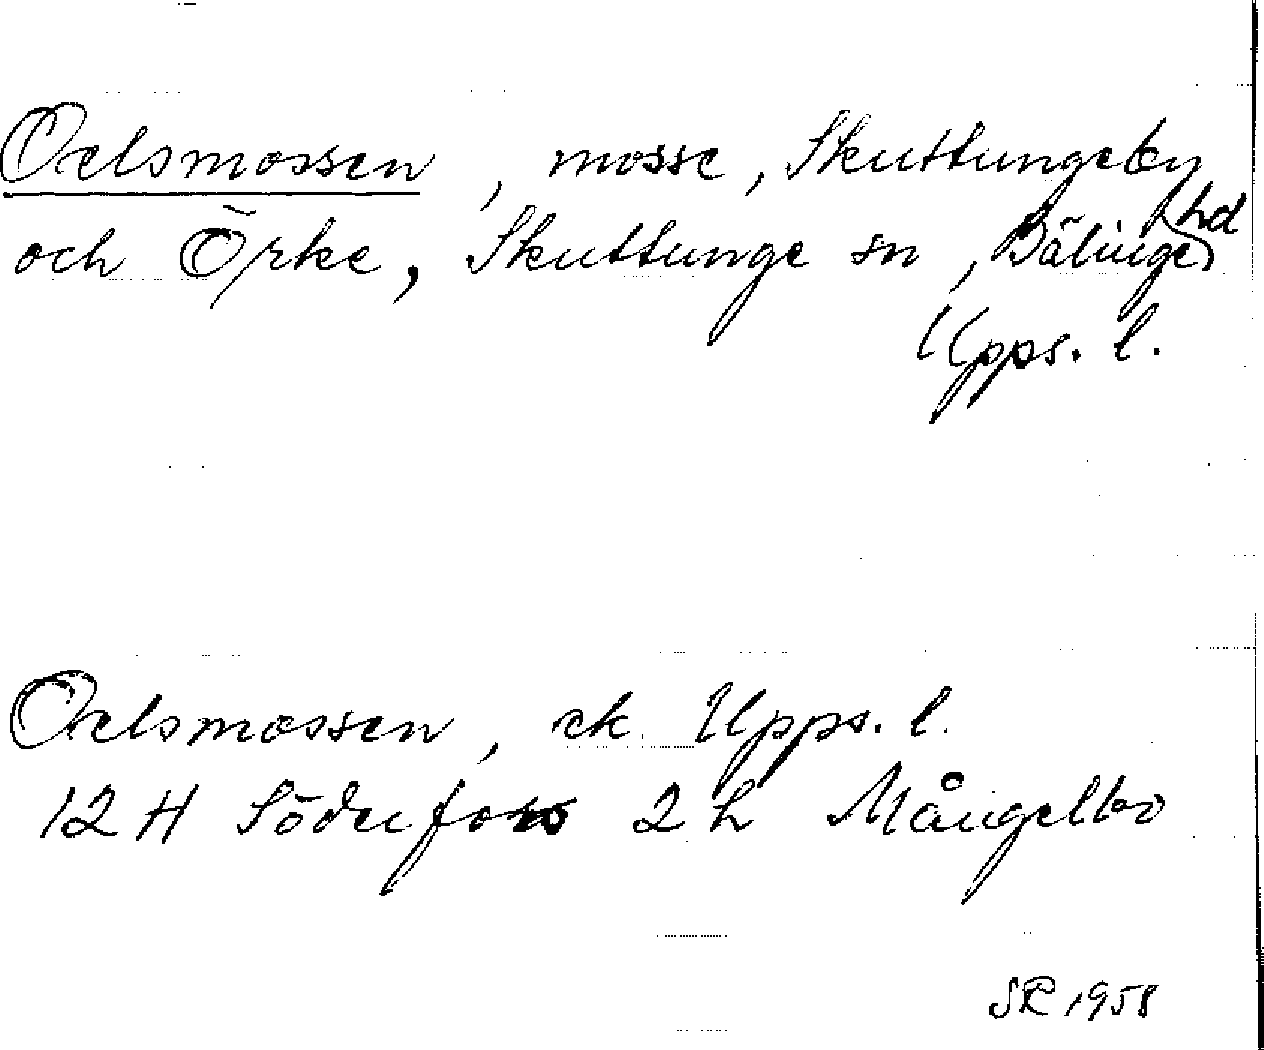 Oxelsmossen, mosse, Skuttungeby
och Örke, Skuttunge sn, Bälinge hd
Upps. l.
Oxelsmossen, ek Upps. l.
12 H Söderfors 2 h Mångelbo
SR 1958